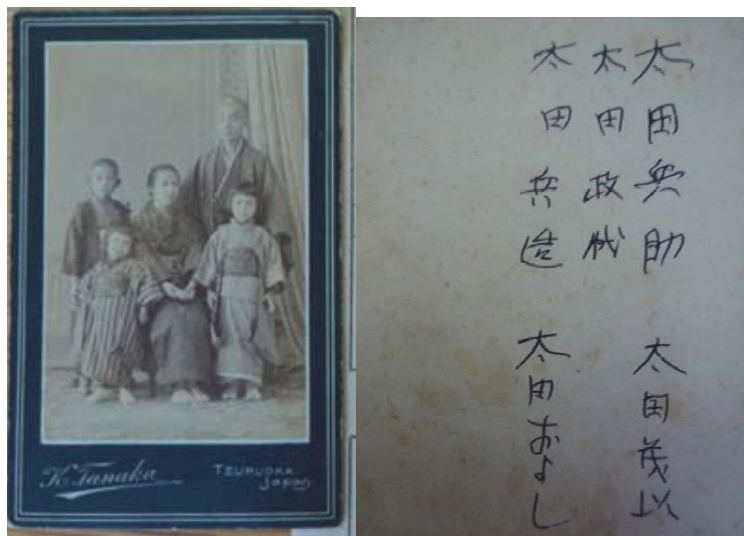 K. Tanaka
TSURUOKA
Japan
太田兵助
太田茂以
太田政代
太田兵造
太田およし